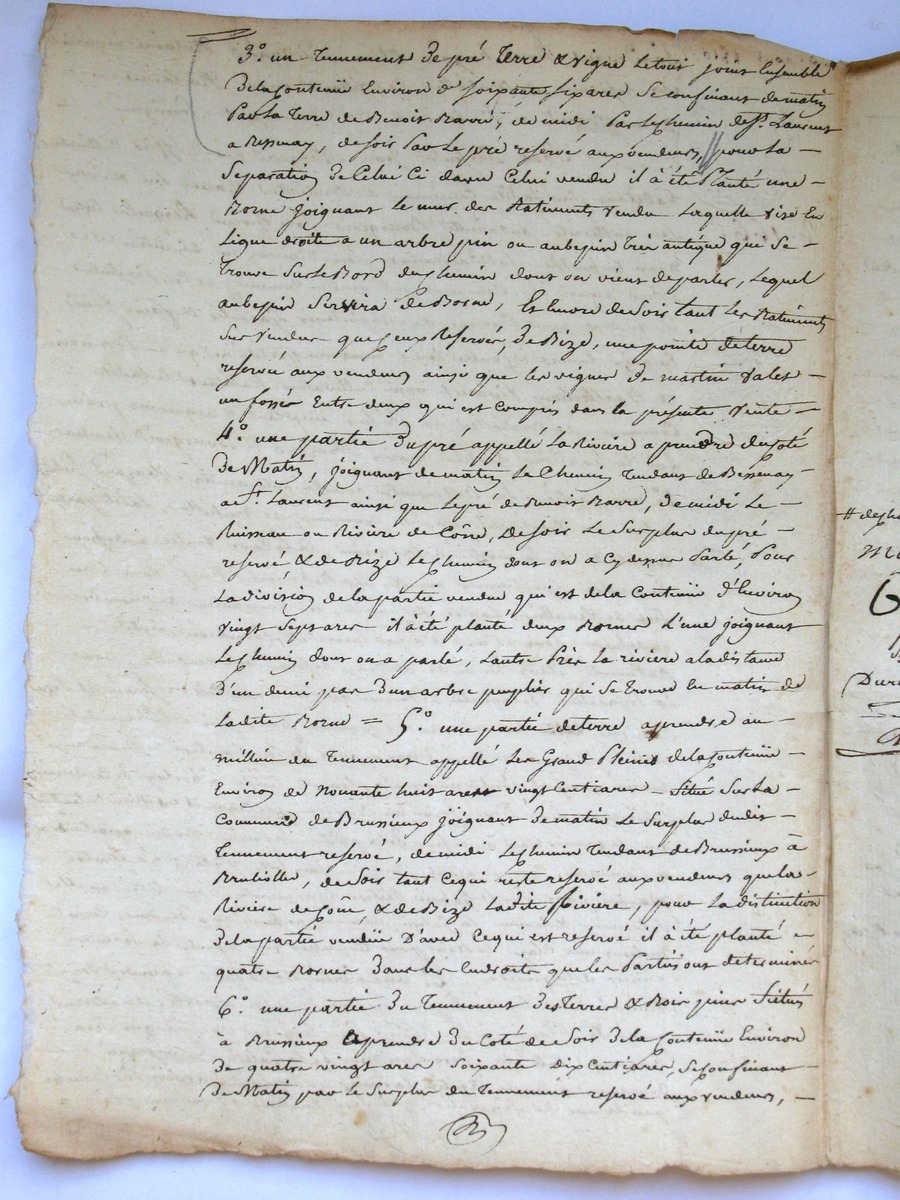 3.° un Tennement de pré terre & vigne le tout joint Ensemble
De la Contenüe Environ de soixante six ares se confinant de matin
Par la Terre de Benoit Barré, de midi Par le chemin de St. Laurent
a Bessenay, de soir Par le pré reservé aux vendeurs, pour la
Separation de Celui Ci davec Celui vendu il à été Planté une
Borne joignant le mur des Batiments vendu laquelle vise En
Ligne droite a un arbre pin ou aubepin très antique qui Se
Trouve sur le Bord du chemin dont on vient de parler, Lequel
aubepin Servira de Borne, Encore de Soir tant les Batiments
Sus vendus que ceux Reservés, de Bize, une pointe de terre
reservée aux vendeurs ainsi que les vignes de martin Valet
un fossée Entre deux qui est compris dans la présente vente
4.° une partie du pré appellé La Rivière a prendre du Coté
De Matin, joignant de matin le Chemin Tendant de Bessenay
a St. Laurent ainsi que le pré de Benoit Barré, de midi Le
Ruisseau ou Rivière de Cône, de soir Le Surplus du pré
reservé & de Bize Le Chemin dont on a Cy dessus Parlé, Pour
La division de la partie vendue qui est de la Contenüe D'Environ
vingt Sept ares il à été planté deux Bornes L'une joignant
Le Chemin dont on a parlé, Lautre Près la rivière a la distance
D'un demi pas d'un arbre peuplier qui se trouve En matin de
Ladite Borne = 5.° une partie de terre a prendre au
millieu du Tennement appellé Les Grand Pleines de la Contenüe
Environ de Nonante huit ares vingt Centiares Situé Sur La
Commune de Brussieux joignant de matin Le Surplus dudit
Tennement reservé, de midi Le chemin Tendant de Brussieux à
Brullolles, de Soir tant Ce qui reste reservé aux vendeurs que la
Rivière de Cône, & de Bize Ladite Rivière, pour La distinction
De la partie vendüe D'avec Ce qui est reservé il à été planté
quatre Bornes Dans les Endroits que les Parties ont determinés
6.° une partie du Tennement des Terres & Bois pins Situés
à Brussieux a prendre du Coté de Soir De la Contenüe Environ
De quatre vingt ares soixante dix Centiares, Se Confinant
De Matin par le Surplus du Tennement reservé aux vendeurs,